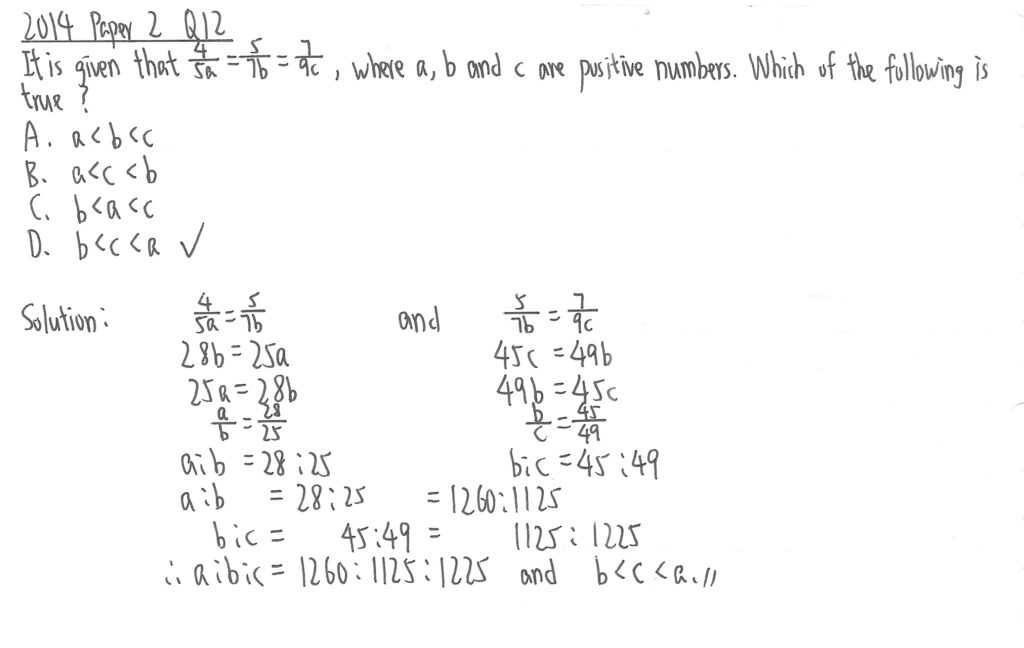 2014 Paper 2 Q12
It is given that 4/5a = 5/7b = 7/9c, where a, b and c are positive numbers. Which of the following is
true?
A. a<b<c
B. a<c<b
C. b<a<c
D. b<c<a ✓
Solution: 4/5a = 5/7b and 5/7b = 7/9c
28b = 25a 45c = 49b
25a = 28b 49b = 45c
a/b = 28/25 b/c = 45/49
a:b = 28:25 b:c = 45:49
a:b = 28:25 = 1260:1125
b:c = 45:49 = 1125:1225
∴ a:b:c = 1260:1125:1225 and b<c<a.//